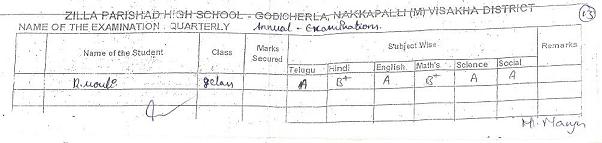 ZILLA PARISHAD HIGH SCHOOL - GODICHERLA, NAKKAPALLI (M) VISAKHA DISTRICT
13
NAME OF THE EXAMINATION : QUARTERLY Annual - Examinations.
Name of the Student Class Marks Secured Subject Wise Remarks
Telugu Hindi English Math's Science Social
A B+ A B+ A A
M. Manju